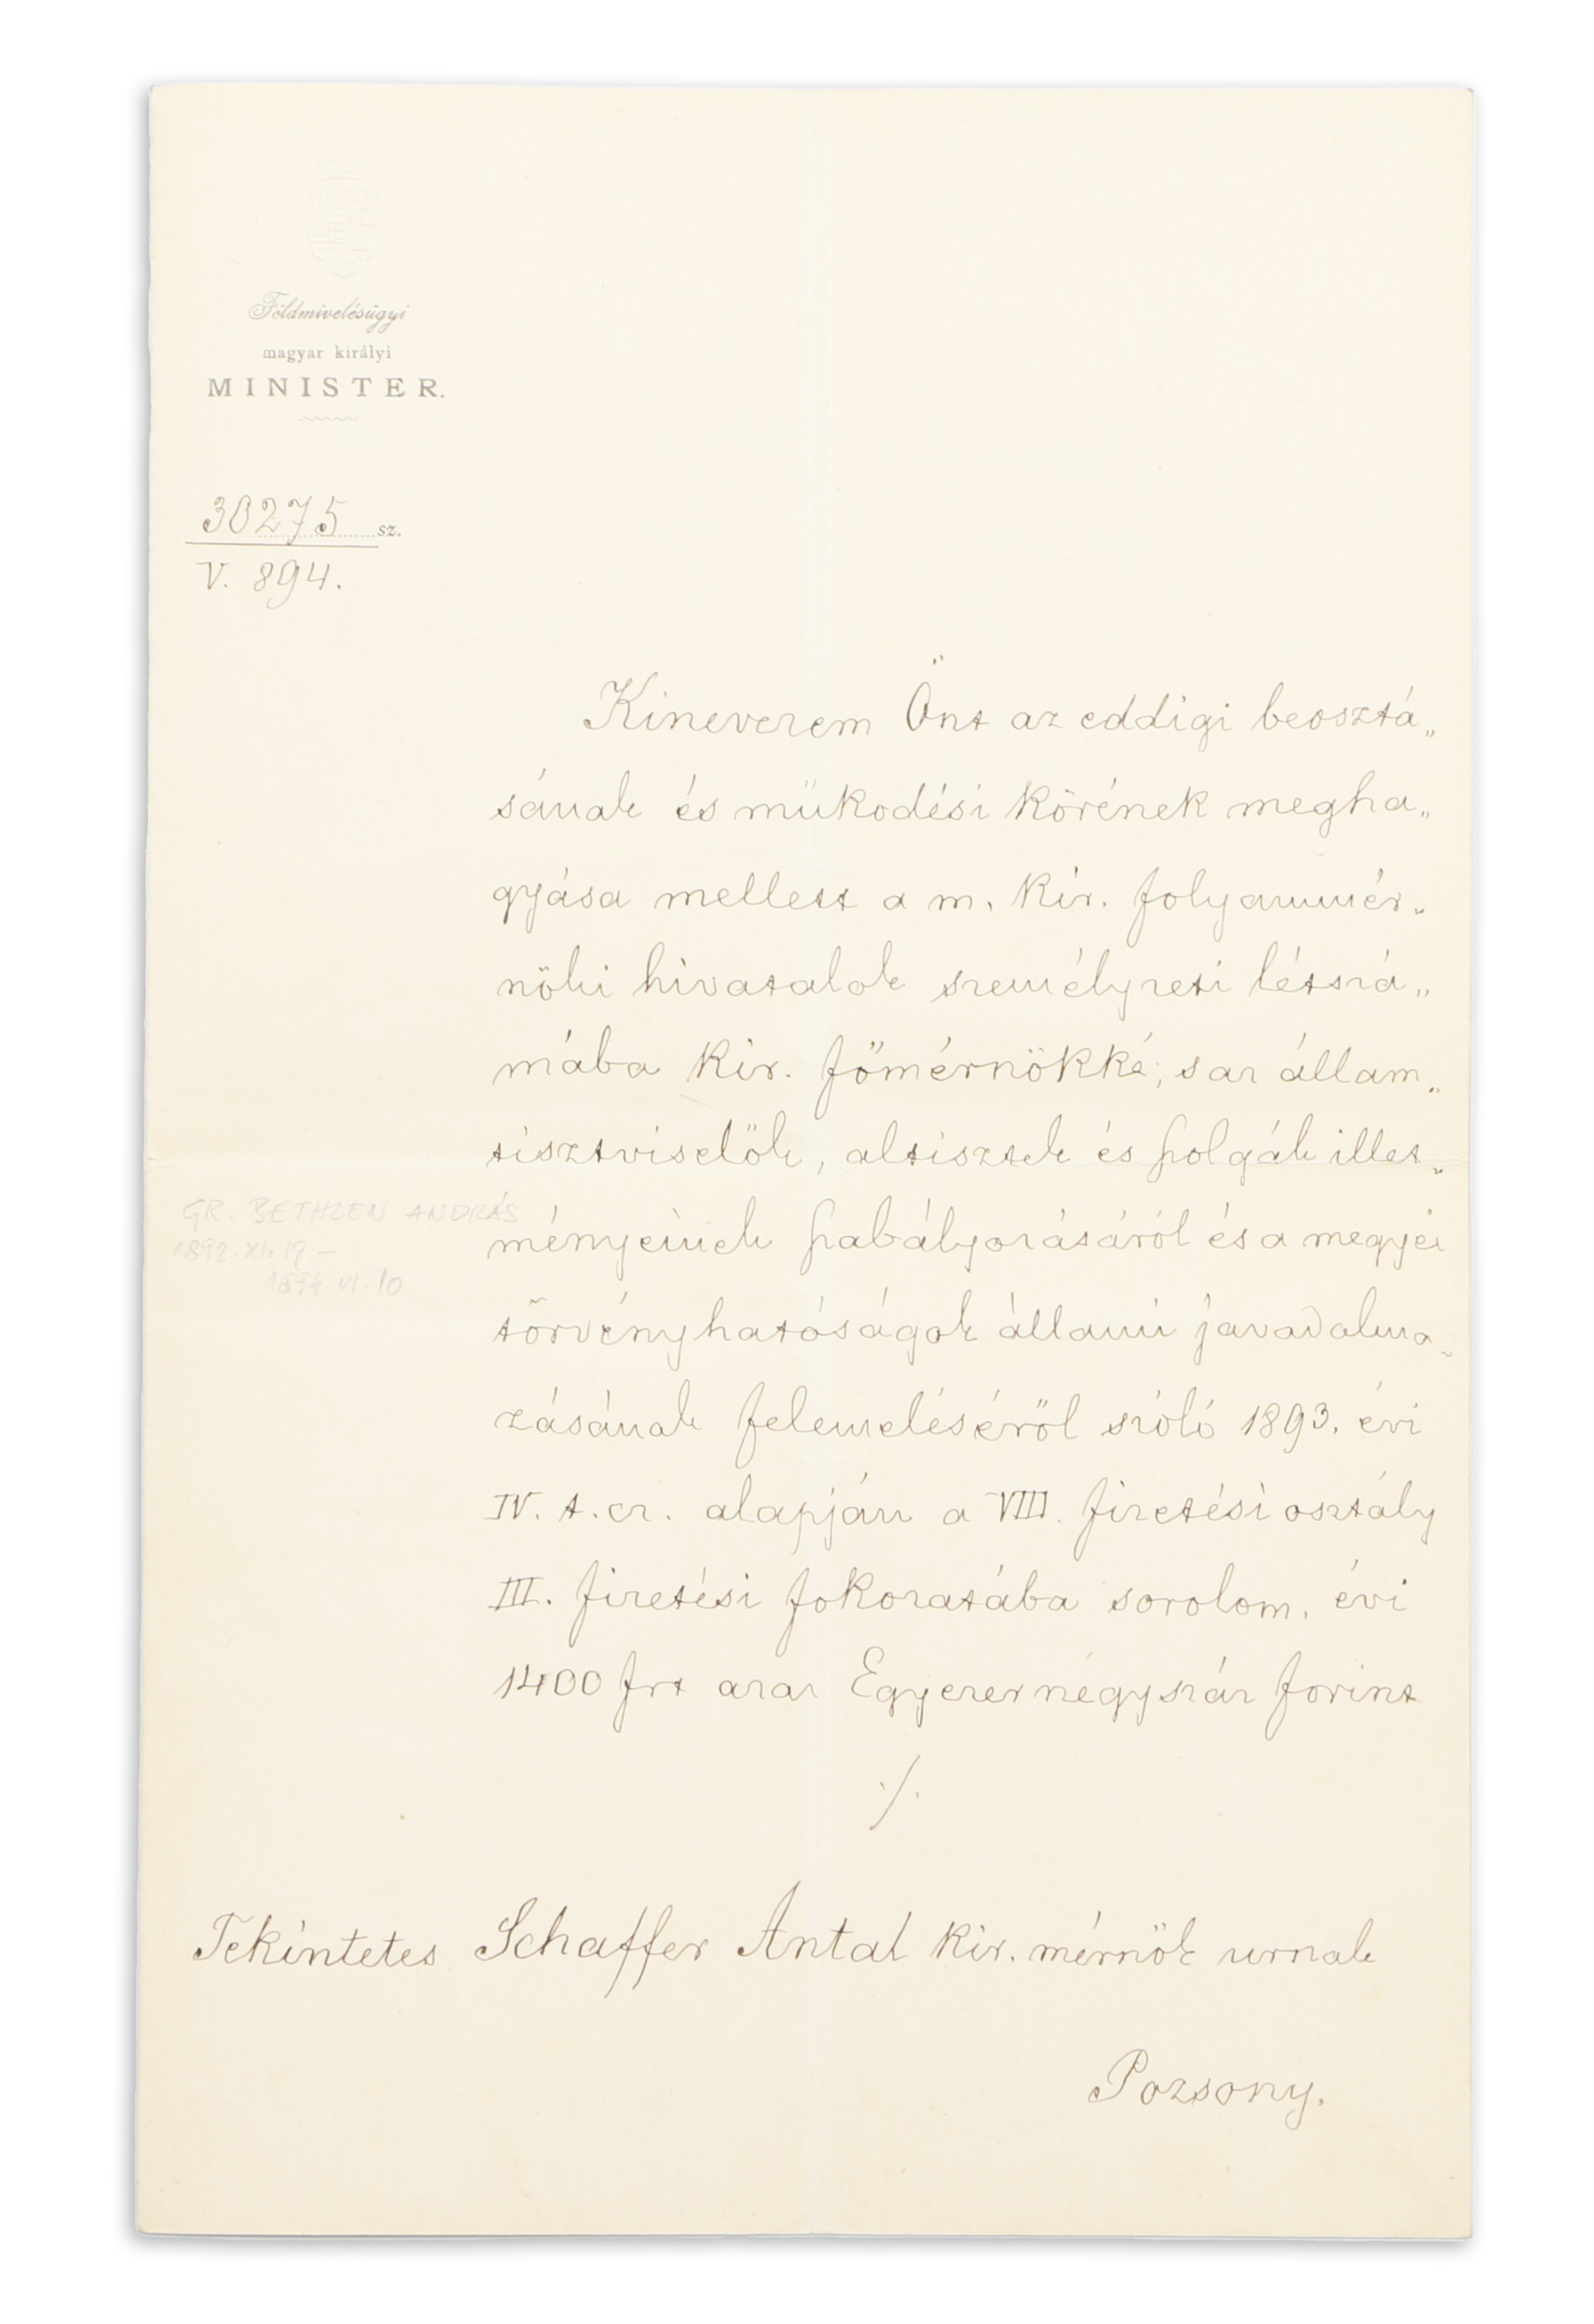 Földmivelésügyi
magyar királyi
MINISTER.
30275 sz.
V. 894.
Kinevezem Önt az eddigi beosztá„
sának és müködési körének megha„
gyása mellett a m. kir. folyammér„
nöki hivatalok személyzeti létszá„
mába kir. főmérnökké, s az állam„
tisztviselők, altisztek és szolgák illet„
ményeinek szabályozásáról és a megyei
törvényhatóságok állami javadalma„
zásának felemeléséről szóló 1893. évi
IV. t. cz. alapján a VIII. fizetési osztály
III. fizetési fokozatába sorolom, évi
1400 frt azaz Egyezernégyszáz forint
./.
GR. BETHLEN ANDRÁS
1892. XI. 19 –
1894. VI. 10
Tekintetes Schaffer Antal kir. mérnök urnak
Pozsony.